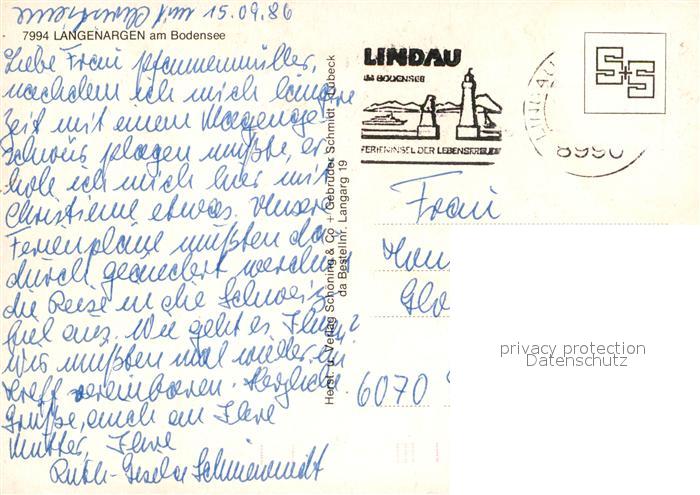 15.09.86
7994 LANGENARGEN am Bodensee
Liebe Frau Pfannenmüller,
nachdem ich mich längere
Zeit mit einem Magenge-
schwür plagen mußte, er-
hole ich mich hier mit
Christiane etwas. Unsere
Ferienpläne mußten da-
durch geändert werden,
die Reise in die Schweiz
fiel aus. Wie geht es Ihnen?
Wir müßten mal wieder ein
Treff vereinbaren. Herzliche
Grüße, auch an Ihre
Mutter, Ihre
Ruth-Gisela
Herst. u. Verlag Schöning & Co + Gebrüder Schmidt · Lübeck
da Bestellnr. Langarg 19
LINDAU
IM BODENSEE
FERIENINSEL DER LEBENSFREUDE
8990
S+S
Frau
6070
privacy protection
Datenschutz